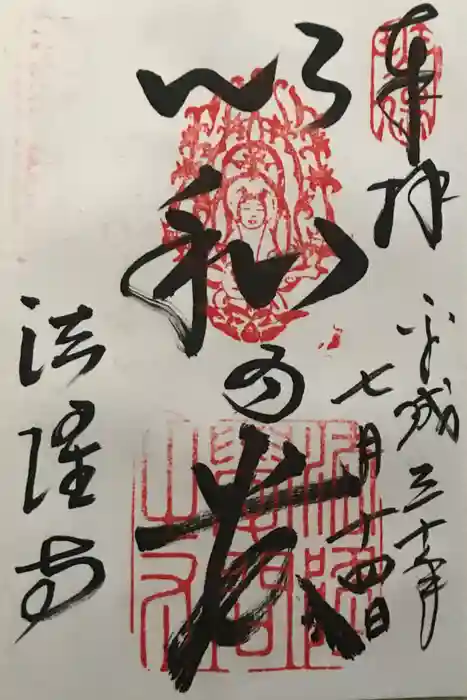 奉拝
平成三十年
七月十四日
以和為貴
法隆寺